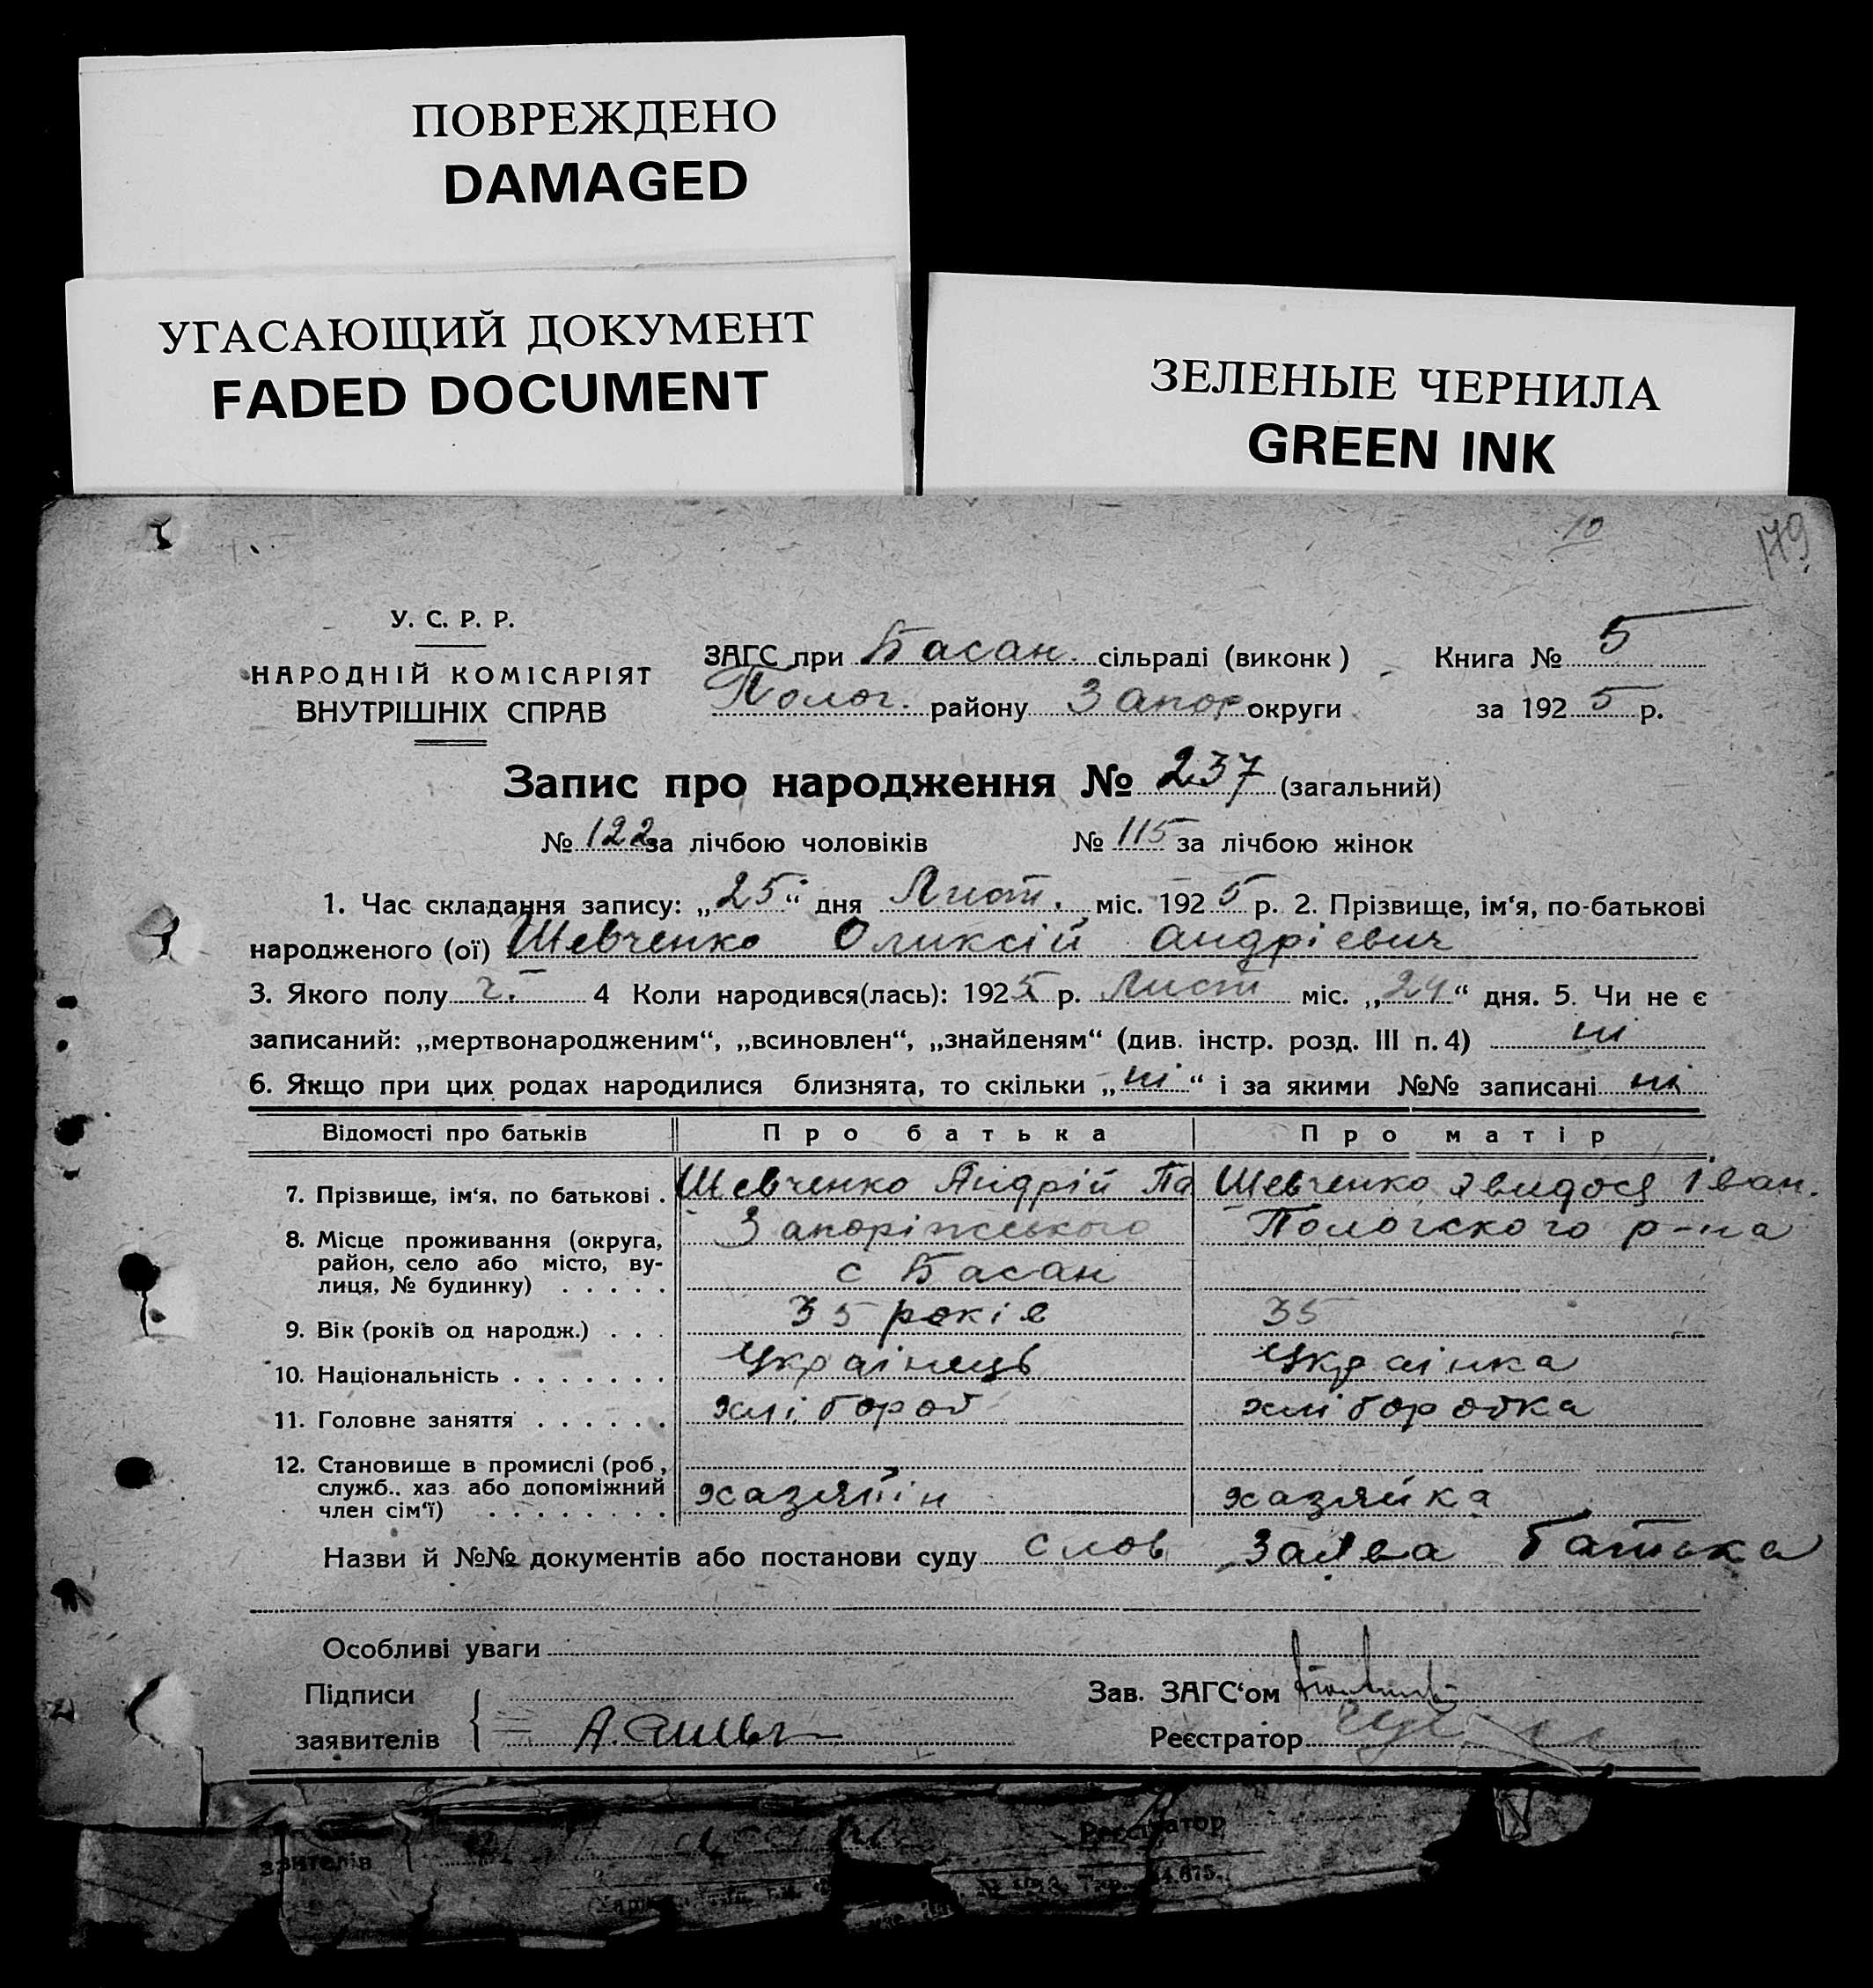 ПОВРЕЖДЕНО
DAMAGED
УГАСАЮЩИЙ ДОКУМЕНТ
FADED DOCUMENT
ЗЕЛЕНЫЕ ЧЕРНИЛА
GREEN INK
10
179
У. С. Р. Р.
НАРОДНІЙ КОМІСАРІЯТ
ВНУТРІШНІХ СПРАВ
ЗАГС при Басан. сільраді (виконк) Книга № 5
Полог. району Запор округи за 1925 р.
Запис про народження № 237 (загальний)
№ 122 за лічбою чоловіків № 115 за лічбою жінок
1. Час складання запису: „25“ дня Лист. міс. 1925 р. 2. Прізвище, ім‘я, по-батькові
народженого (ої) Шевченко Оликсій Андрієвич
3. Якого полу ч. 4 Коли народився(лась): 1925 р. Лист міс. „24“ дня. 5. Чи не є
записаний: „мертвонародженим“, „всиновлен“, „знайденям“ (див. інстр. розд. III п. 4) ні
6. Якщо при цих родах народилися близнята, то скільки „ні“ і за якими №№ записані ні
Відомості про батьків Про батька Про матір
7. Прізвище, ім‘я, по батькові . Шевченко Андрій Па Шевченко Явидося Іван.
8. Місце проживання (округа, Запоріжського Пологского р-на
район, село або місто, ву- с Басан
лиця, № будинку) . . . . .
9. Вік (років од народж.) . . . 35 років 35
10. Національність . . . . . . . Українець Українка
11. Головне заняття . . . . . . хлібороб хліборобка
12. Становище в промислі (роб,
служб.. хаз або допоміжний хазяїін хазяйка
член сім‘ї) . . . . . . . .
Назви й №№ документів або постанови суду слов заява батька
Особливі уваги
Підписи Зав. ЗАГС‘ом
заявителів { А. Реєстратор
Реєстратор
явителів {